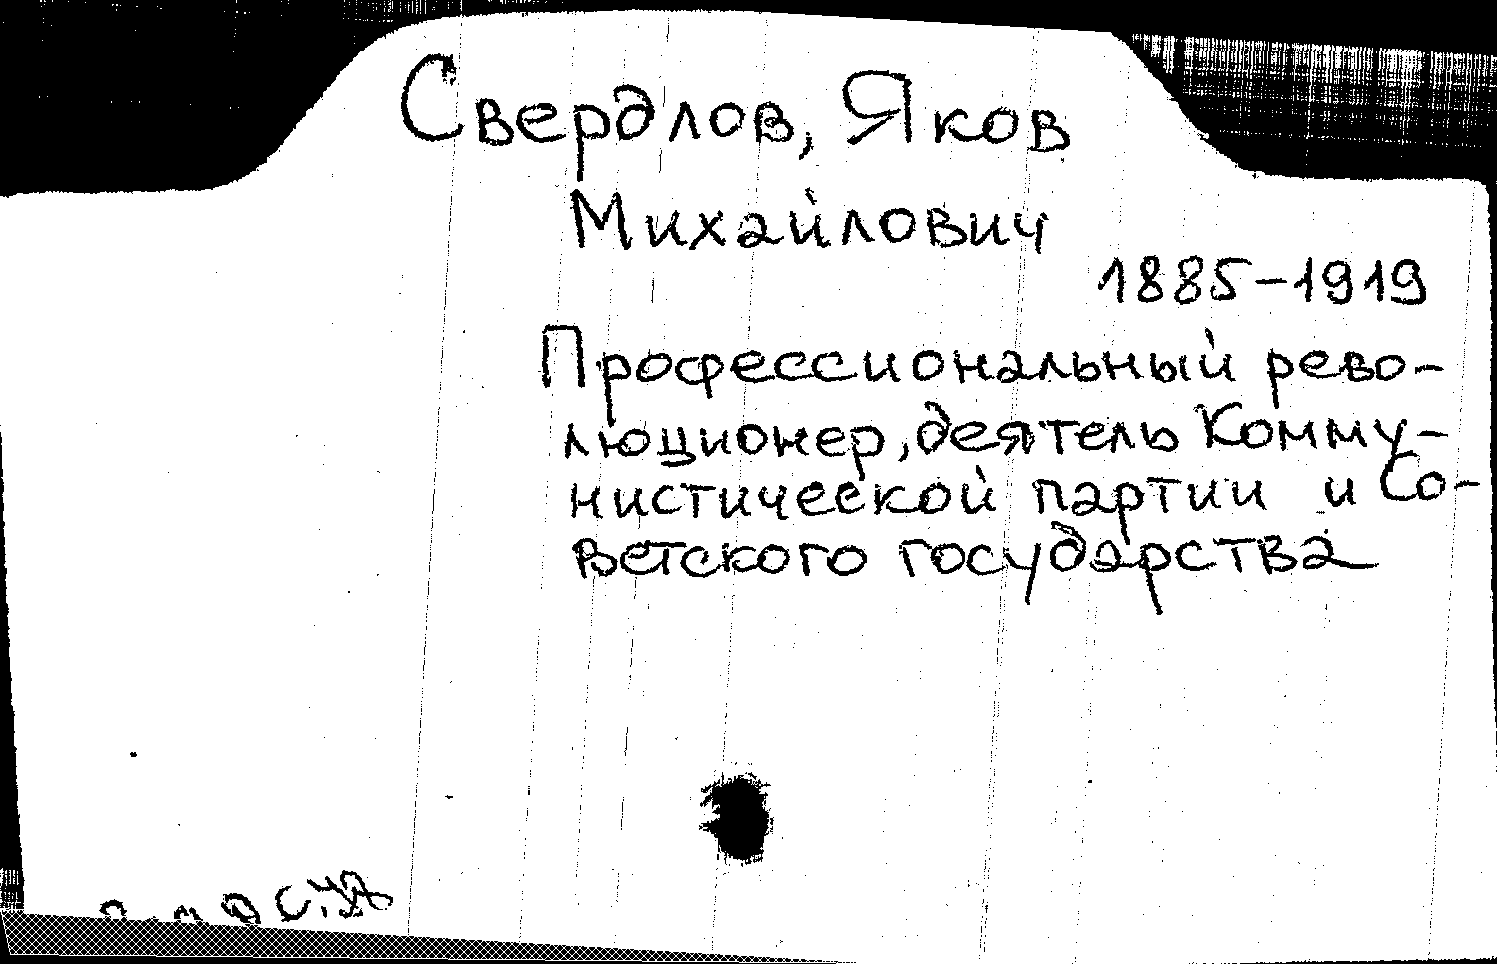 Свердлов, Яков
Михайлович
1885-1919
Профессиональный рево-
люционер, деятель Комму-
нистической партии и Со-
ветского государства